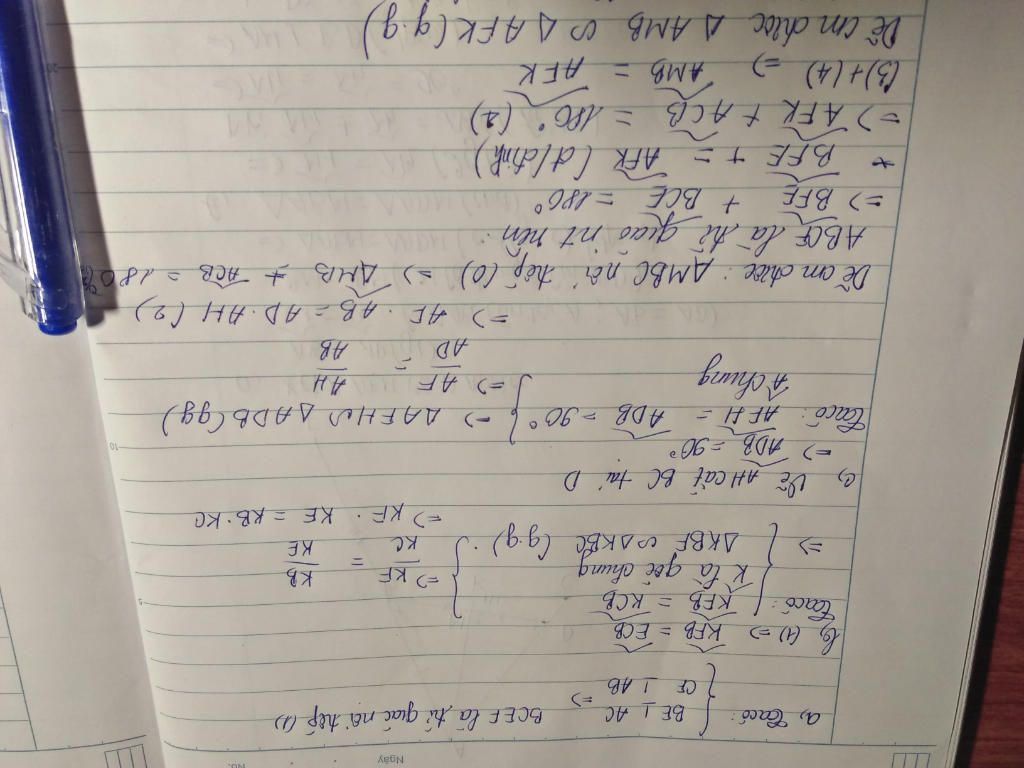 Ngày
No.
a, Ta có: { BE ⊥ AC
CF ⊥ AB => BCEF là tứ giác nội tiếp (1)
b, (1) => KFB = ECB
Ta có: { KFB = KCB
K là góc chung } => KF/KC = KB/KE
=> ΔKBF ∽ ΔKBC (g.g)
=> KF . KE = KB.KC
c, Vẽ AH cắt BC tại D
=> ADB = 90°
Ta có: AFH = ADB = 90° } => ΔAFH ∽ ΔADB (gg)
A chung => AF/AD = AH/AB
=> AF . AB = AD . AH (2)
Dễ cm được: AMBC nội tiếp (O) => AMB + ACB = 180°
là tứ giác nt nên
=> BFE + BCE = 180°
+ BFE + = AFK (đ/đỉnh)
=> AFK + ACB = 180° (2)
(3)+(4) => AMB = AFK
Dễ cm được Δ AMB ∽ Δ AFK (g.g)
5
10